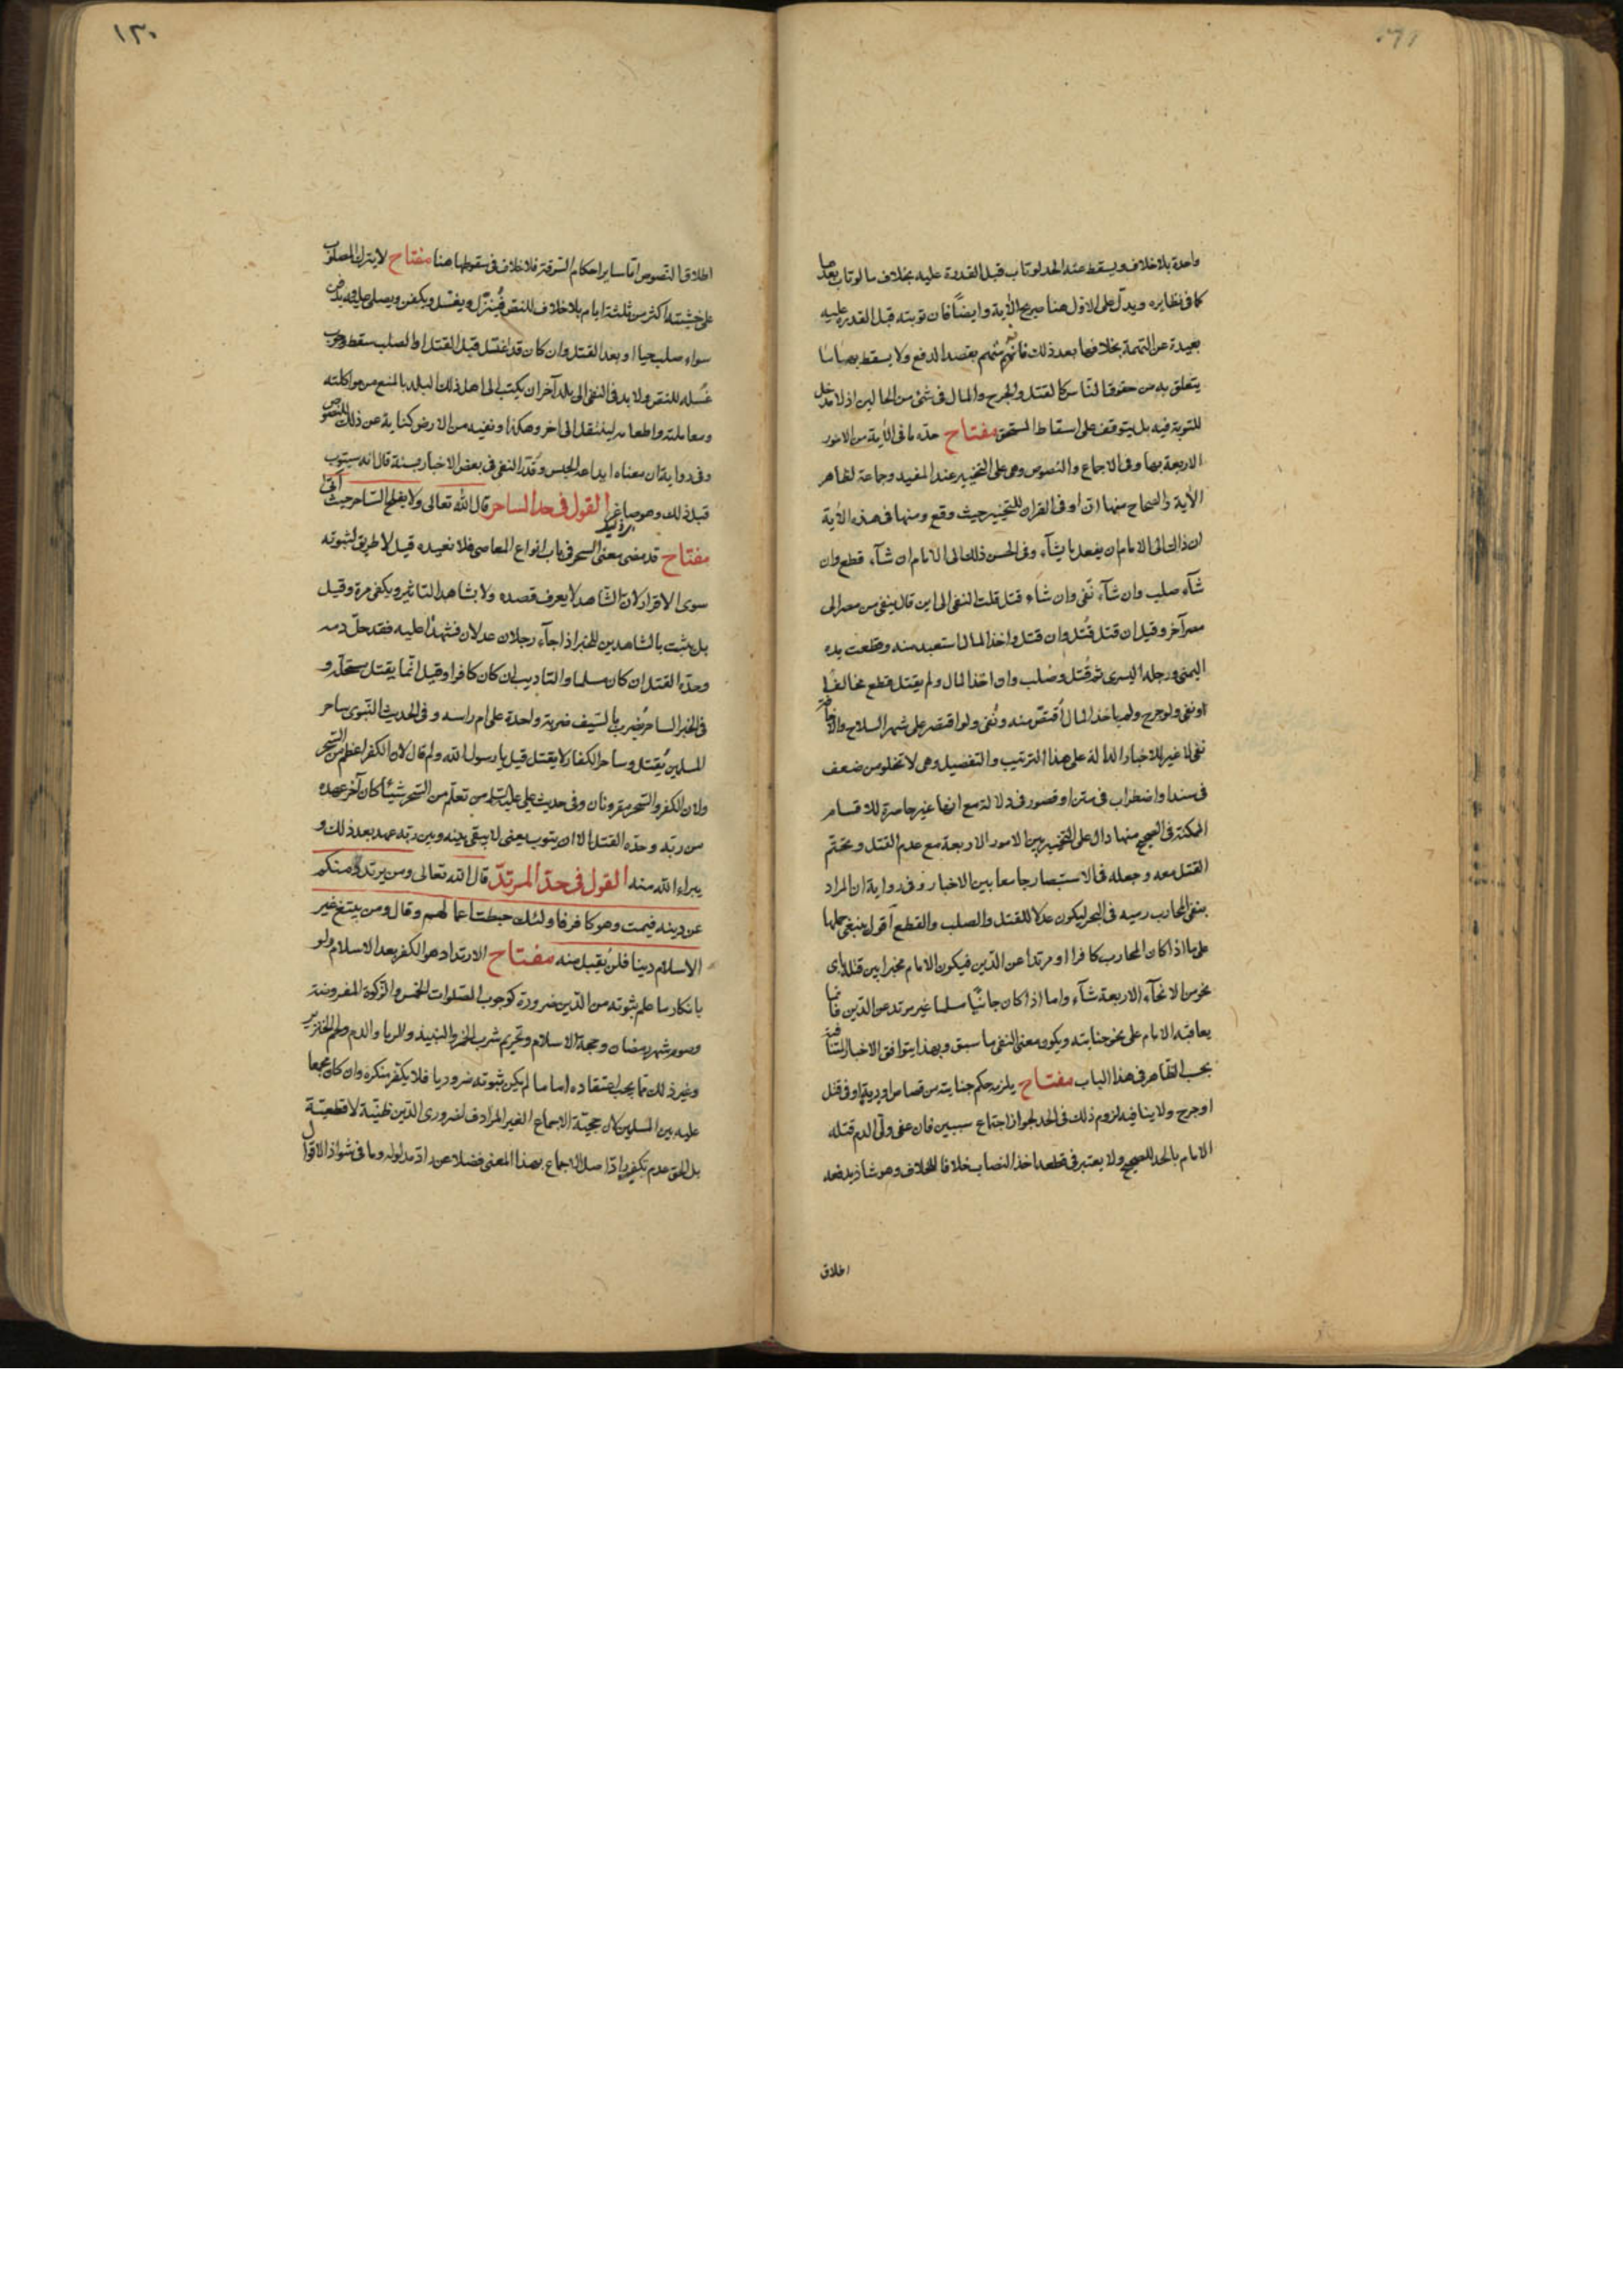 واحدة بلا خلاف ويسقط عنه الحد لو تاب قبل القدرة عليه بخلاف ما لو تاب بعدها
كما في نظايره ويدل على الاول هنا صريح الآية وايضًا فان توبته قبل القدرة عليه
بعيدة عن التهمة بخلافها بعد ذلك فانه متهم بقصد الدفع ولا يسقط بها ما
يتعلق به من حقوق الناس كالقتل والجرح والمال في شئ من الحالين اذ لا مدخل
للتوبة فيه بل يتوقف على اسقاط المستحق مفتاح حده ما في الآية من الامور
الاربعة بها وفي الاجماع والنصوص وهى على التخيير عند المفيد وجماعة لظاهر
الآية والصحاح منها ان او في القران للتخيير حيث وقع ومنها في هذه الآية
ان ذاك الى الامام ان يفعل ما يشآء وفي الحسن ذلك الى الامام ان شآء قطع وان
شآء صلب وان شآء نفى وان شاء قتل قلت النفى الى اين قال ينفى من مصر الى
مصر آخر وقيل ان قتل قُتل وان قتل واخذ المال استعيد منه وقطعت يده
اليمنى ورجله اليسرى ثم قُتل وصُلب وان اخذ المال ولم يقتل قطع مخالفا
او نفى ولو جرح ولم ياخذ المال اُقتص منه ونُفى ولو اقتصر على شهر السلاح والاخافة
نفى لا غير للاخبار الدالة على هذا الترتيب والتفصيل وهى لا تخلو من ضعف
في سند او اضطراب في متن او قصور في دلالة مع انها غير حاصرة للاقسام
الممكنة في الصحيح منها دال على التخيير بين الامور الاربعة مع عدم القتل وتحتم
القتل معه وجعله في الاستبصار جامعا بين الاخبار وفي رواية ان المراد
بنفى المحارب رميه في البحر ليكون عدلا للقتل والصلب والقطع اقول ينبغى حملها
على ما اذا كان المحارب كافرا او مرتدا عن الدين فيكون الامام مخيرا بين قتله باى
نحو من الانحآء الاربعة شآء واما اذا كان جانيًا مسلما غير مرتد عن الدين فانما
يعاقبه الامام على نحو جنايته ويكون معنى النفى ما سبق وبهذا يتوافق الاخبار المتنافية
بحسب الظاهر في هذا الباب مفتاح يلزمه حكم جنايته من قصاص او دية لو قتل
او جرح ولا ينافيه لزوم ذلك في الحد لجواز اجتماع سببين فان عفى ولّى الدم قتله
الامام بالحد للصحيح ولا يعتبر في قطعه اخذ النصاب خلافا للخلاف وهو شاذ يدفعه
اطلاق
١٣٠
اطلاق النصوص اما ساير احكام السرقة فلا خلاف في سقوطها هنا مفتاح لا يترك المصلوب
على خشبته اكثر من ثلثة ايام بلا خلاف للنص فيُنزّل ويغسّل ويكفن ويصلى عليه ويدفن
سواء صلب حيا او بعد القتل وان كان قد اغتسل قبل القتل او الصلب سقط وجوب
غُسله للنص ولا بد في النفى الى بلد آخر ان يكتب الى اهل ذلك البلد بالمنع من مواكلته
ومعاملته واطعامه لينتقل الى اخر وهكذا ونفيه من الارض كناية عن ذلك للنصوص
وفي رواية ان معناه ايداعه الحبس وقُدّر النفى في بعض الاخبار بسنة قال انه سيتوب
قبل ذلك وهو صاغر القول في حد الساحر قال الله تعالى ولا يفلح الساحر حيث اتى
مفتاح قد مضى معنى السحر في باب انواع المعاصى فلا نعيده قيل لا طريق لثبوته
سوى الاقرار لان الشاهد لا يعرف قصده ولا يشاهد التاثير ويكفى مرة وقيل
بل يثبت بالشاهدين للخبر اذا جآء رجلان عدلان فشهدا عليه فقد حلّ دمه
وحدّه القتل ان كان مسلما والتاديب ان كان كافرا وقيل انّما يقتل مستحله و
في الخبر الساحر يُضرب بالسّيف ضربة واحدة على ام راسه وفي الحديث النّبوى ساحر
المسلمين يُقتل وساحر الكفار لا يقتل قيل يا رسول الله ولم قال لان الكفر اعظم من السّحر
ولان الكفر والسّحر مقرونان وفي حديث على عليه السلم من تعلّم من السّحر شيئًا كان آخر عهده
من ربّه وحدّه القتل الا ان يتوب يعنى لا يبقى بينه وبين ربّه عهد بعد ذلك و
يبراء الله منه القول في حدّ المرتدّ قال الله تعالى ومن يرتدد منكم
عن دينه فيمت وهو كافر فاولئك حبطت اعمالهم وقال ومن يبتغ غير
الاسلام دينا فلن يُقبل منه مفتاح الارتداد هو الكفر بعد الاسلام ولو
بانكار ما علم ثبوته من الدّين ضرورة كوجوب الصّلوات الخمس والزّكوة المفروضة
وصوم شهر رمضان وحجة الاسلام وتحريم شرب الخمر والنبيذ والربا والدم ولحم الخنزير
وغير ذلك ممّا يجب اعتقاده اما ما لم يكن ثبوته ضروريا فلا يكفر منكره وان كان مجمعا
عليه بين المسلمين لان حجيّة الاجماع الغير المرادف لضرورى الدّين ظنيّة لا قطعيّة
بل الحق عدم تكفير رادّ اصل الاجماع بهذا المعنى فضلا عن رادّ مدلوله وما في شواذ الاقوال